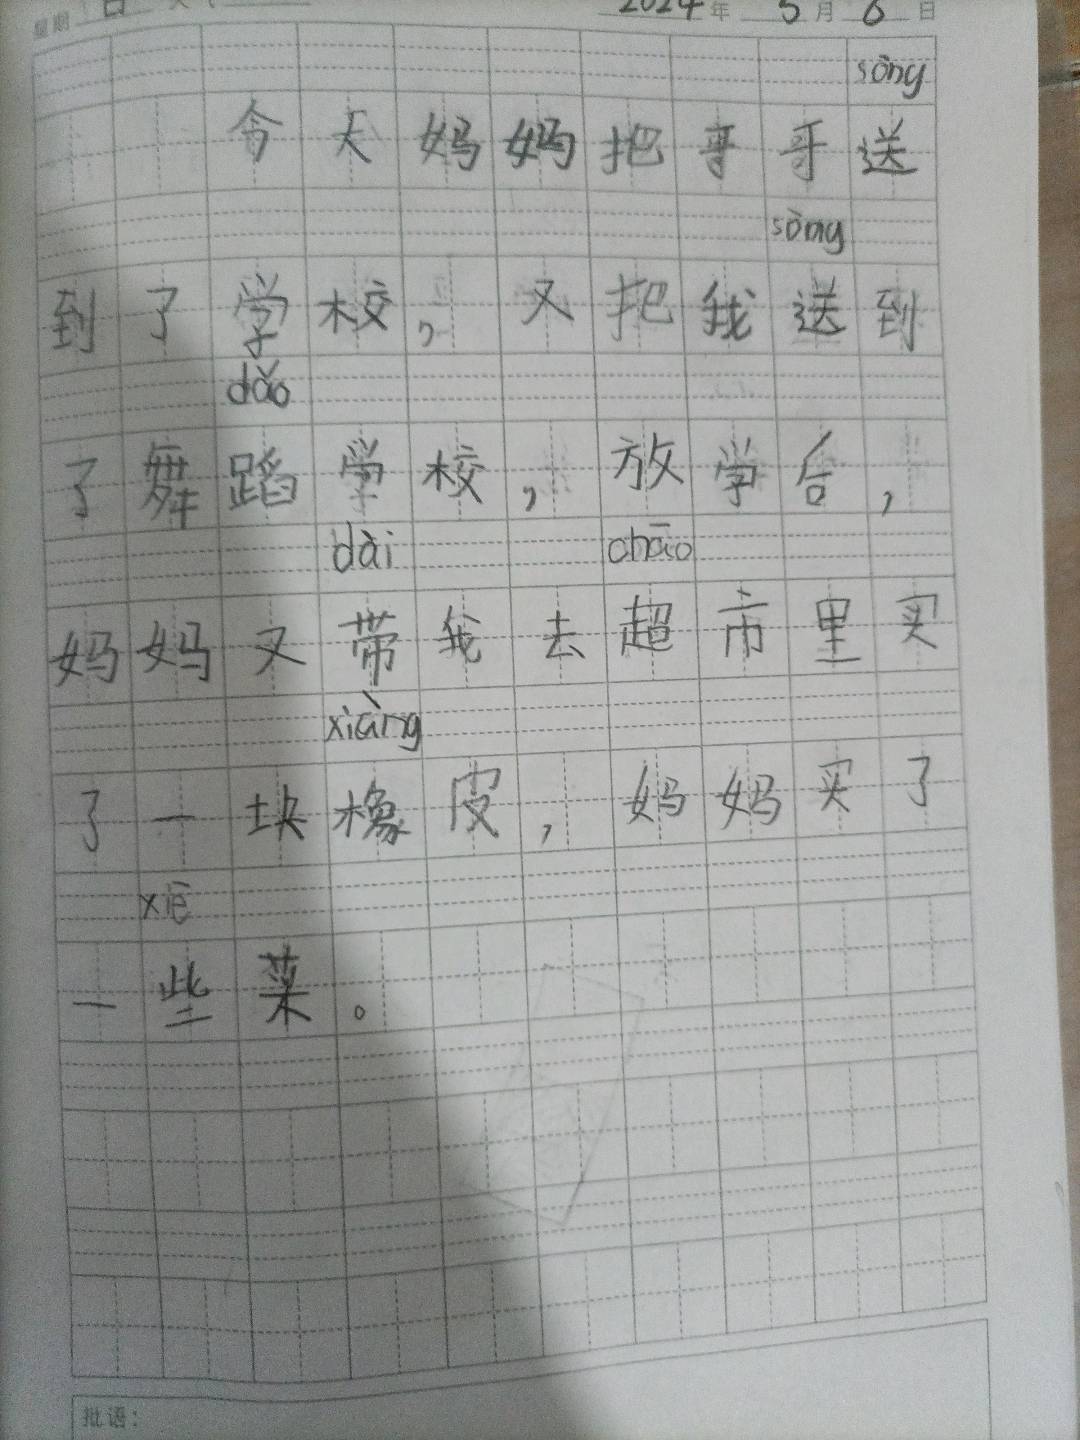 星期 日 天气
2024年 5月 6日
sòng
今天妈妈把哥哥送
sòng
到了学校，又把我送到
dǎo
了舞蹈学校，放学后，
dài chāo
妈妈又带我去超市里买
xiàng
了一块橡皮，妈妈买了
xiē
一些菜。
批语：